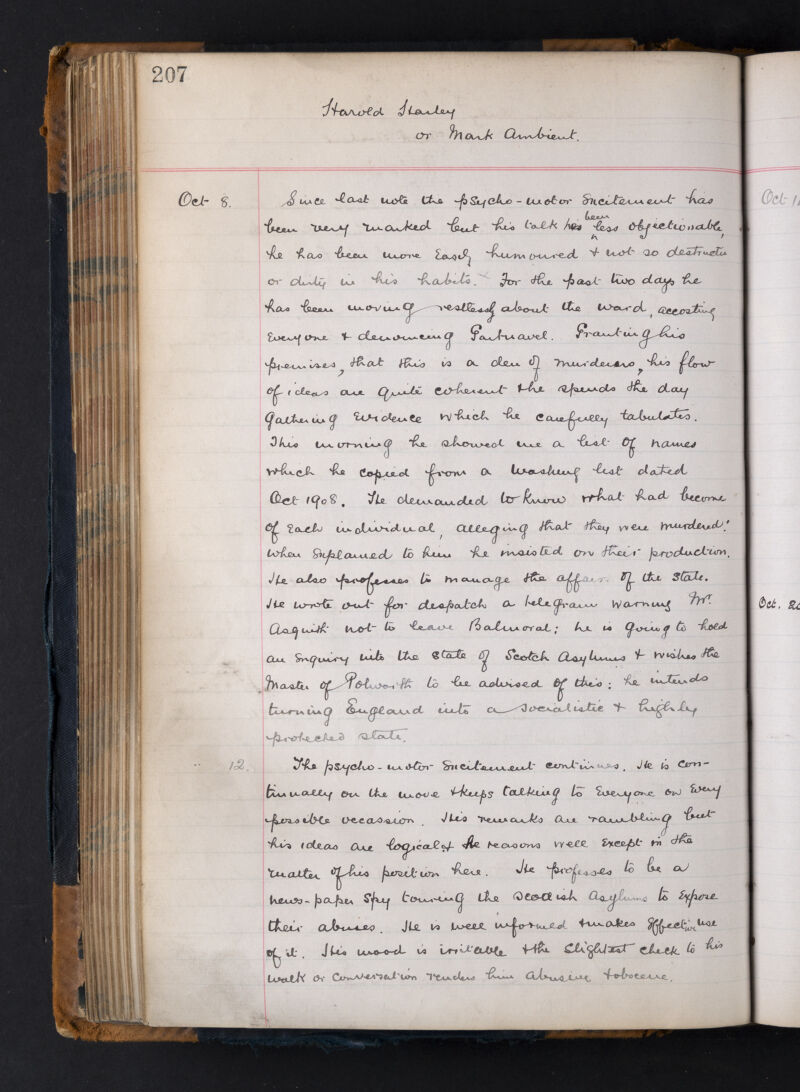 207
Harold Stanley
or Mark Ambient.
Oct 8. Since last note the psycho-motor excitement has
been very marked but his talk has been less objectionable,
he has been more easily humoured & not so destructive
or dirty in his habits. For the past two days he
has been moving restlessly about the ward, accosting
everyone & denouncing Gartnavel. Granting his
premises, that this is a den of murderers, his flow
of ideas are quite coherent & he spends the day
gathering evidence which he carefully tabulates.
This morning he showed me a list of names
which he copied from a washing list dated
Oct 1908. He demanded to know what had become
of each individual, alleging that they were murdered!
When explained to him he insisted on their production.
He also professes to manage the affairs of the State.
He wrote out for despatch a telegram warning Mr.
Asquith not to leave Balmoral; he is going to hold
an enquiry into the state of Scotch Asylums & wishes the
Master of Polwarth to be advised of this; he intends
turning England into a socialistic & highly
protected state.
" 12. The psycho-motor excitement continues. He is con-
tinually on the move & keeps talking to everyone on every
possible occassion. His remarks are rambling but
his ideas are logical & he reasons well except in the
matter of his position here. He professes to be a
news-paper spy touring the Scottish Asylums to expose
their abuses. He is well informed & makes effective use
of it. His mood is irritable & the slightest check to his
walk or conversation renders him abusive & obscene.
Oct 1
Oct. 20